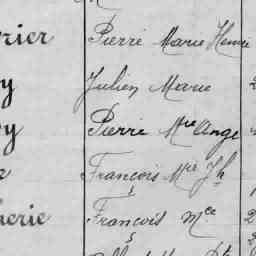 rier Pierre Marie Henri
y Julien Marie
y Pierre Mie Ange
François Mie Jh
herie François Mee